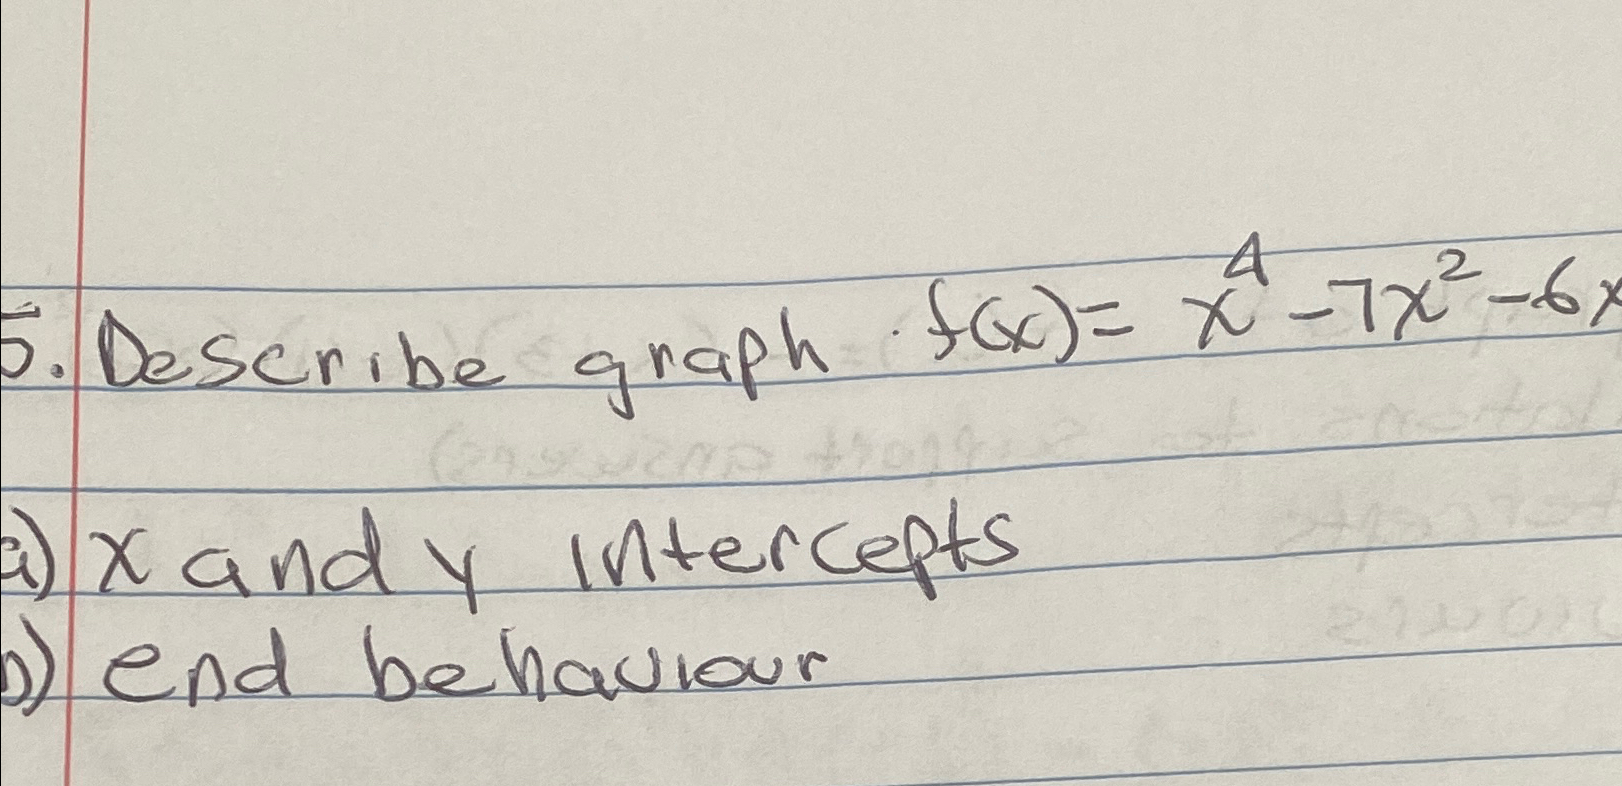 5. Describe graph f(x) = x⁴ - 7x² - 6x
a) x and y intercepts
b) end behaviour